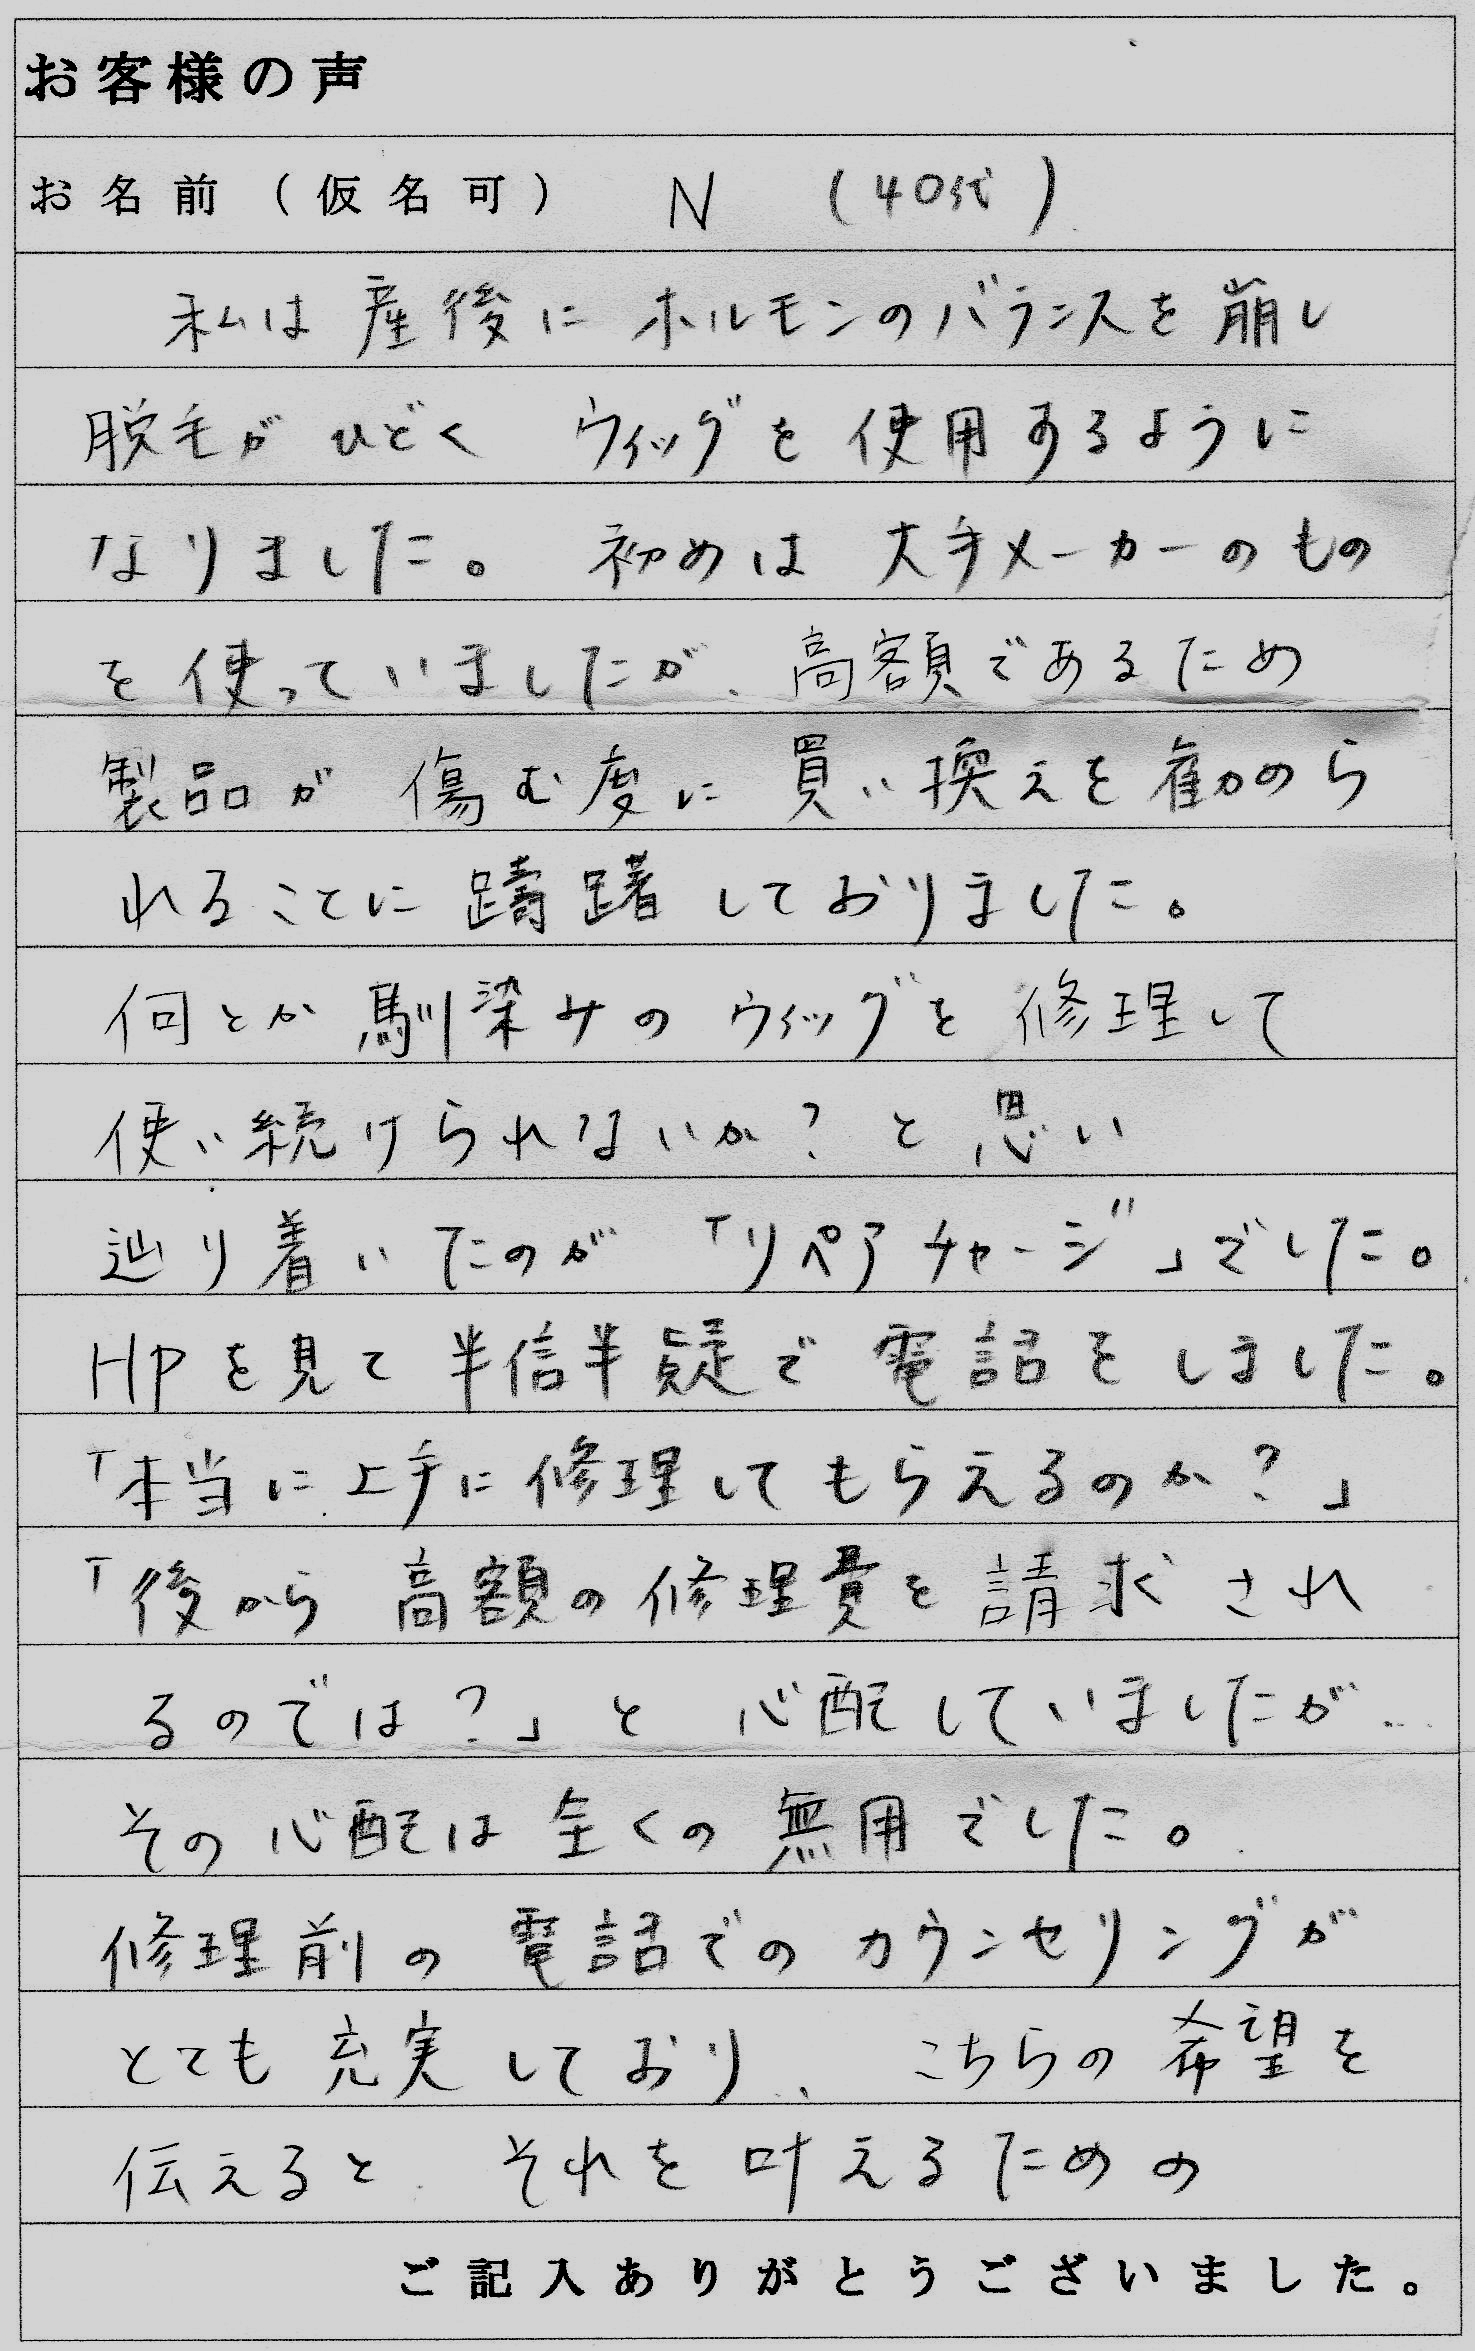 お客様の声
お名前（仮名可） N （40代）
私は産後にホルモンのバランスを崩し
脱毛がひどく ウィッグを使用するように
なりました。 初めは 大手メーカーのもの
を使っていましたが、高額であるため
製品が 傷む度に 買い換えを勧めら
れることに躊躇しておりました。
何とか馴染みのウィッグを修理して
使い続けられないか？と思い
辿り着いたのが「リペアチャージ」でした。
HPを見て半信半疑で電話をしました。
「本当に上手に修理してもらえるのか？」
「後から高額の修理費を請求され
るのでは？」と 心配していましたが…
その心配は全くの無用でした。
修理前の電話でのカウンセリングが
とても充実しており、 こちらの希望を
伝えると それを叶えるための
ご記入ありがとうございました。